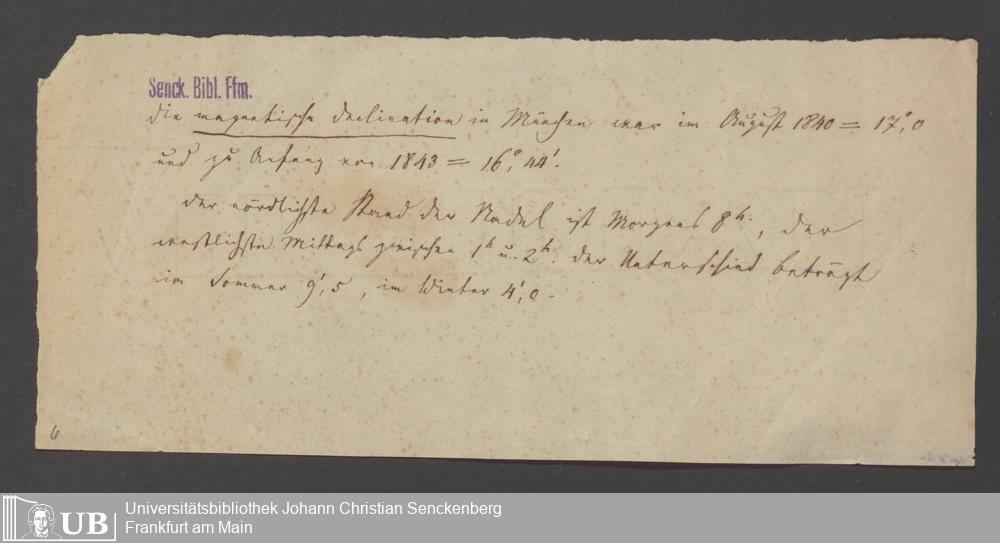 Senck. Bibl. Ffm.
die magnetische Declination in München war im August 1840 = 17°,0
und zu Anfang von 1843 = 16°, 44'.
der nördlichste Stand der Nadel ist Morgens 8h., der
westlichste Mittags zwischen 1h u. 2h. der Unterschied beträgt
im Sommer 9',5, im Winter 4',0.
6
UB
Universitätsbibliothek Johann Christian Senckenberg
Frankfurt am Main